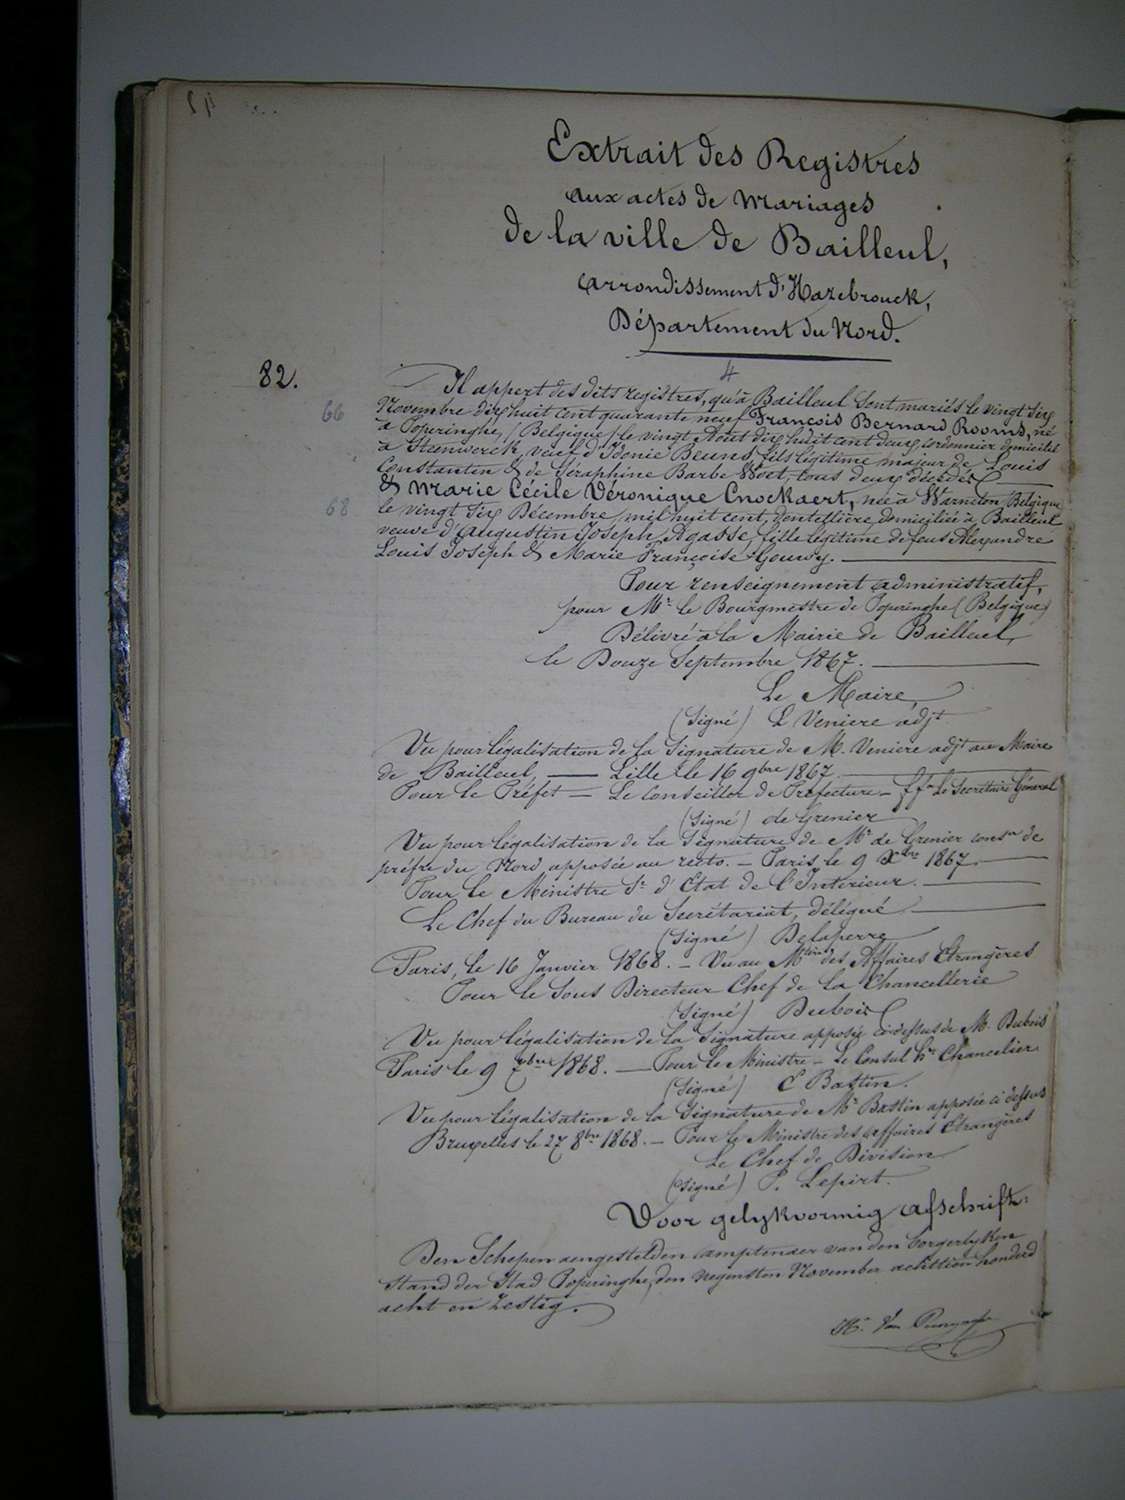 Extrait des Registres
aux actes de mariages
de la ville de Bailleul,
arrondissement d'Hazebrouck,
Département du Nord.
4
82.
Il appert des dits registres, qu'à Bailleul sont mariés le vingt six
66
Novembre dix huit cent quarante neuf François Bernard Rooms, né
à Poperinghe, (Belgique) le vingt Aout dix huit cent deux, cordonnier domicilié
à Steenwerck, veuf d'Idonie Beuns, fils légitime majeur de Louis
Constantin & de Séraphine Barbe Woet, tous deux décédés
& Marie Cécile Véronique Cnockaert, née à Warneton, Belgique
68
le vingt six Décembre mil huit cent, dentellière, domiciliée à Bailleul
veuve d'Augustin Joseph Agasse, fille légitime de feus Alexandre
Louis Joseph & Marie Françoise Gouwy.
Pour renseignement administratif,
pour Mr le Bourgmestre de Poperinghe (Belgique)
Délivré à la Mairie de Bailleul,
le Douze Septembre 1867.
Le Maire,
(Signé) L Veniere adjt
Vu pour légalisation de la Signature de M. Veniere adjt au Maire
de Bailleul, — Lille le 16 9bre 1867
Pour le Préfet — Le Conseiller de Préfecture — ff le Secrétaire Général
(Signé) de Grenier
Vu pour légalisation de la Signature de Mr de Grenier consr de
préfre du Nord apposée au recto. — Paris le 9 Xbre 1867.
Pour le Ministre St d'Etat de l'Intérieur.
Le Chef du Bureau du Secrétariat, délégué
(Signé) Delaperre
Paris, le 16 Janvier 1868. — Vu au Mtère des Affaires Etrangères
Pour le Sous Directeur Chef de la Chancellerie
(Signé) Dubois
Vu pour légalisation de la Signature apposée ci dessus de M. Dubois
Paris le 9 1868. — Pour le Ministre — Le Consul Chancelier
(Signé) E Bastin.
Vu pour légalisation de la Signature de Mr Bastin apposée ci dessus
Bruxelles le 27 8bre 1868. — Pour le Ministre des Affaires Etrangères
Le Chef de Division
(Signé) P. Lepirt.
Voor gelykvormig afschrift:
Den Schepen aengestelden amptenaer van den borgerlyken
stand der Stad Poperinghe, den negensten November achttien honderd
acht en zestig.